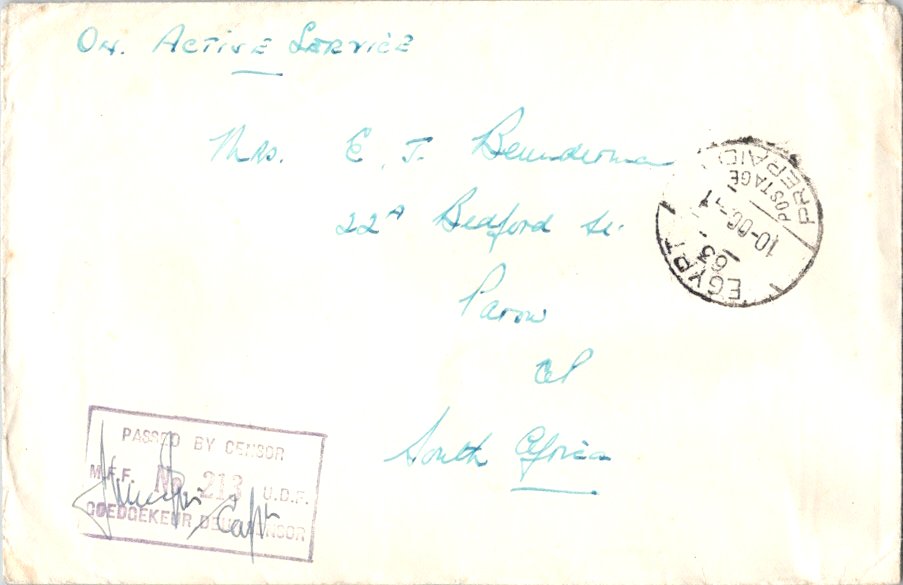 On. Active Service
Mrs. E. J. Beunderman
22A Bedford St.
Parow
CP
South Africa
EGYPT
63
10-OC
POSTAGE
PREPAID
PASSED BY CENSOR
M.F.F. No 213 U.D.F.
GOEDGEKEUR DEUR SENSOR
Capt